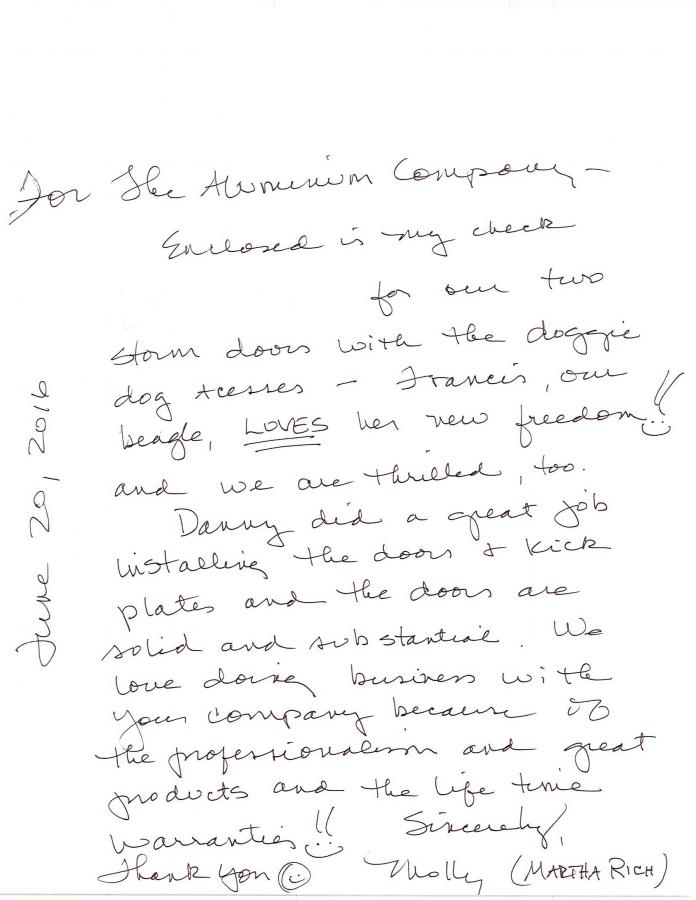 For The Aluminum Company –
Enclosed is my check
for our two
storm doors with the doggie
dog accesses – Francis, our
beagle, LOVES her new freedom!!
and we are thrilled, too.
Danny did a great job
installing the doors & kick
plates and the doors are
solid and substantial. We
love doing business with
your company because of
the professionalism and great
products and the life time
warranties!! Sincerely,
Thank you ☺ Molly (MARTHA RICH)
June 20, 2016